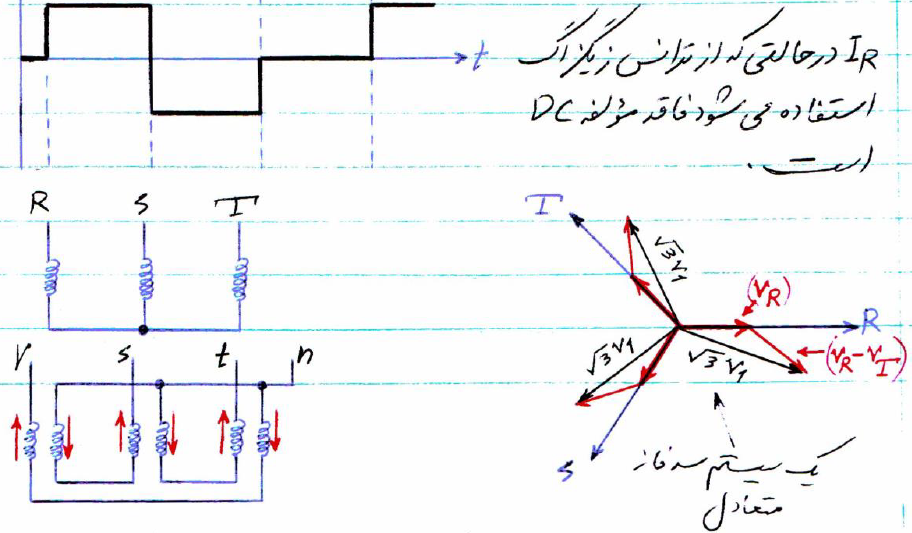 t
I_R در حالتی که از ترانس زیگزاگ
استفاده می شود فاقد مؤلفه DC
است.
R S T
r s t n
T
√3 V1
(V_R)
R
(V_R - V_T)
√3 V1
√3 V1
S
یک سیستم سه فاز
متعادل